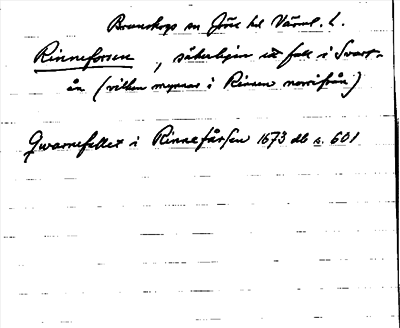 Brunskogs sn Jösse hd Värml. l.
Rinneforsen, säkerligen ett fall i Svart-
ån (vilken mynnar i Rinnen norrifrån)
Qwarnefallet i Rinnefårsen 1673 db s. 601